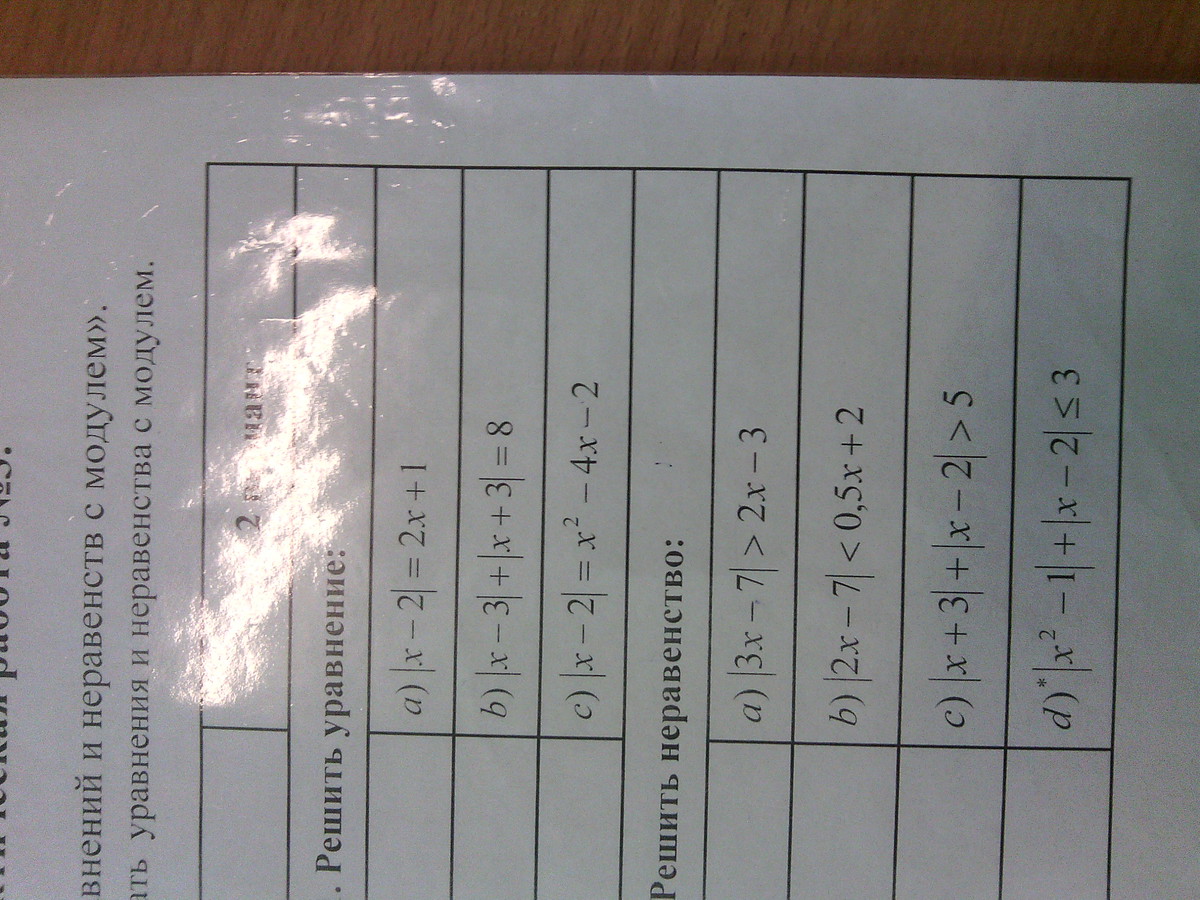 работа №5.
внений и неравенств с модулем».
ать уравнения и неравенства с модулем.
2
. Решить уравнение:
a) |x − 2| = 2x + 1
b) |x − 3| + |x + 3| = 8
c) |x − 2| = x² − 4x − 2
Решить неравенство:
a) |3x − 7| > 2x − 3
b) |2x − 7| < 0,5x + 2
c) |x + 3| + |x − 2| > 5
d)* |x² − 1| + |x − 2| ≤ 3